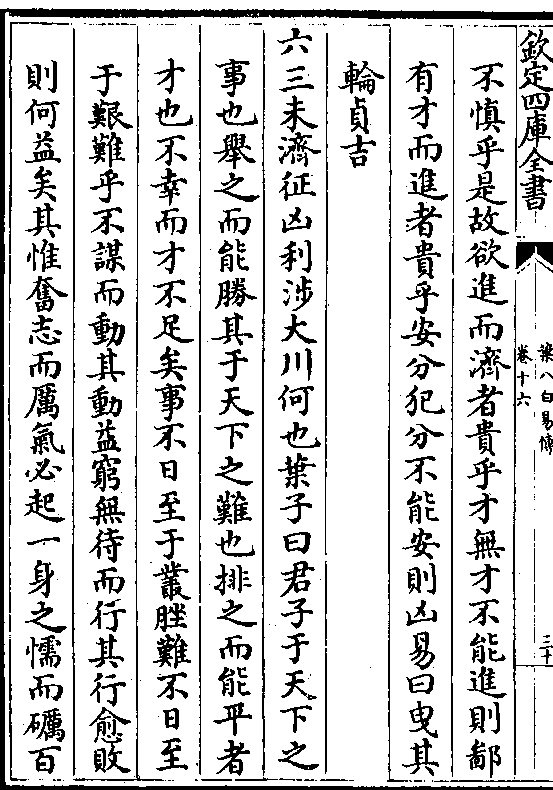 欽定四庫全書
葉八白易傳
卷十六
三十
不慎乎是故欲進而濟者貴乎才無才不能進則鄙
有才而進者貴乎安分犯分不能安則凶易曰曳其
輪貞吉
六三未濟征凶利涉大川何也葉子曰君子于天下之
事也舉之而能勝其于天下之難也排之而能平者
才也不幸而才不足矣事不日至于叢脞難不日至
于艱難乎不謀而動其動益窮無待而行其行愈敗
則何益矣其惟奮志而厲氣必起一身之懦而礪百